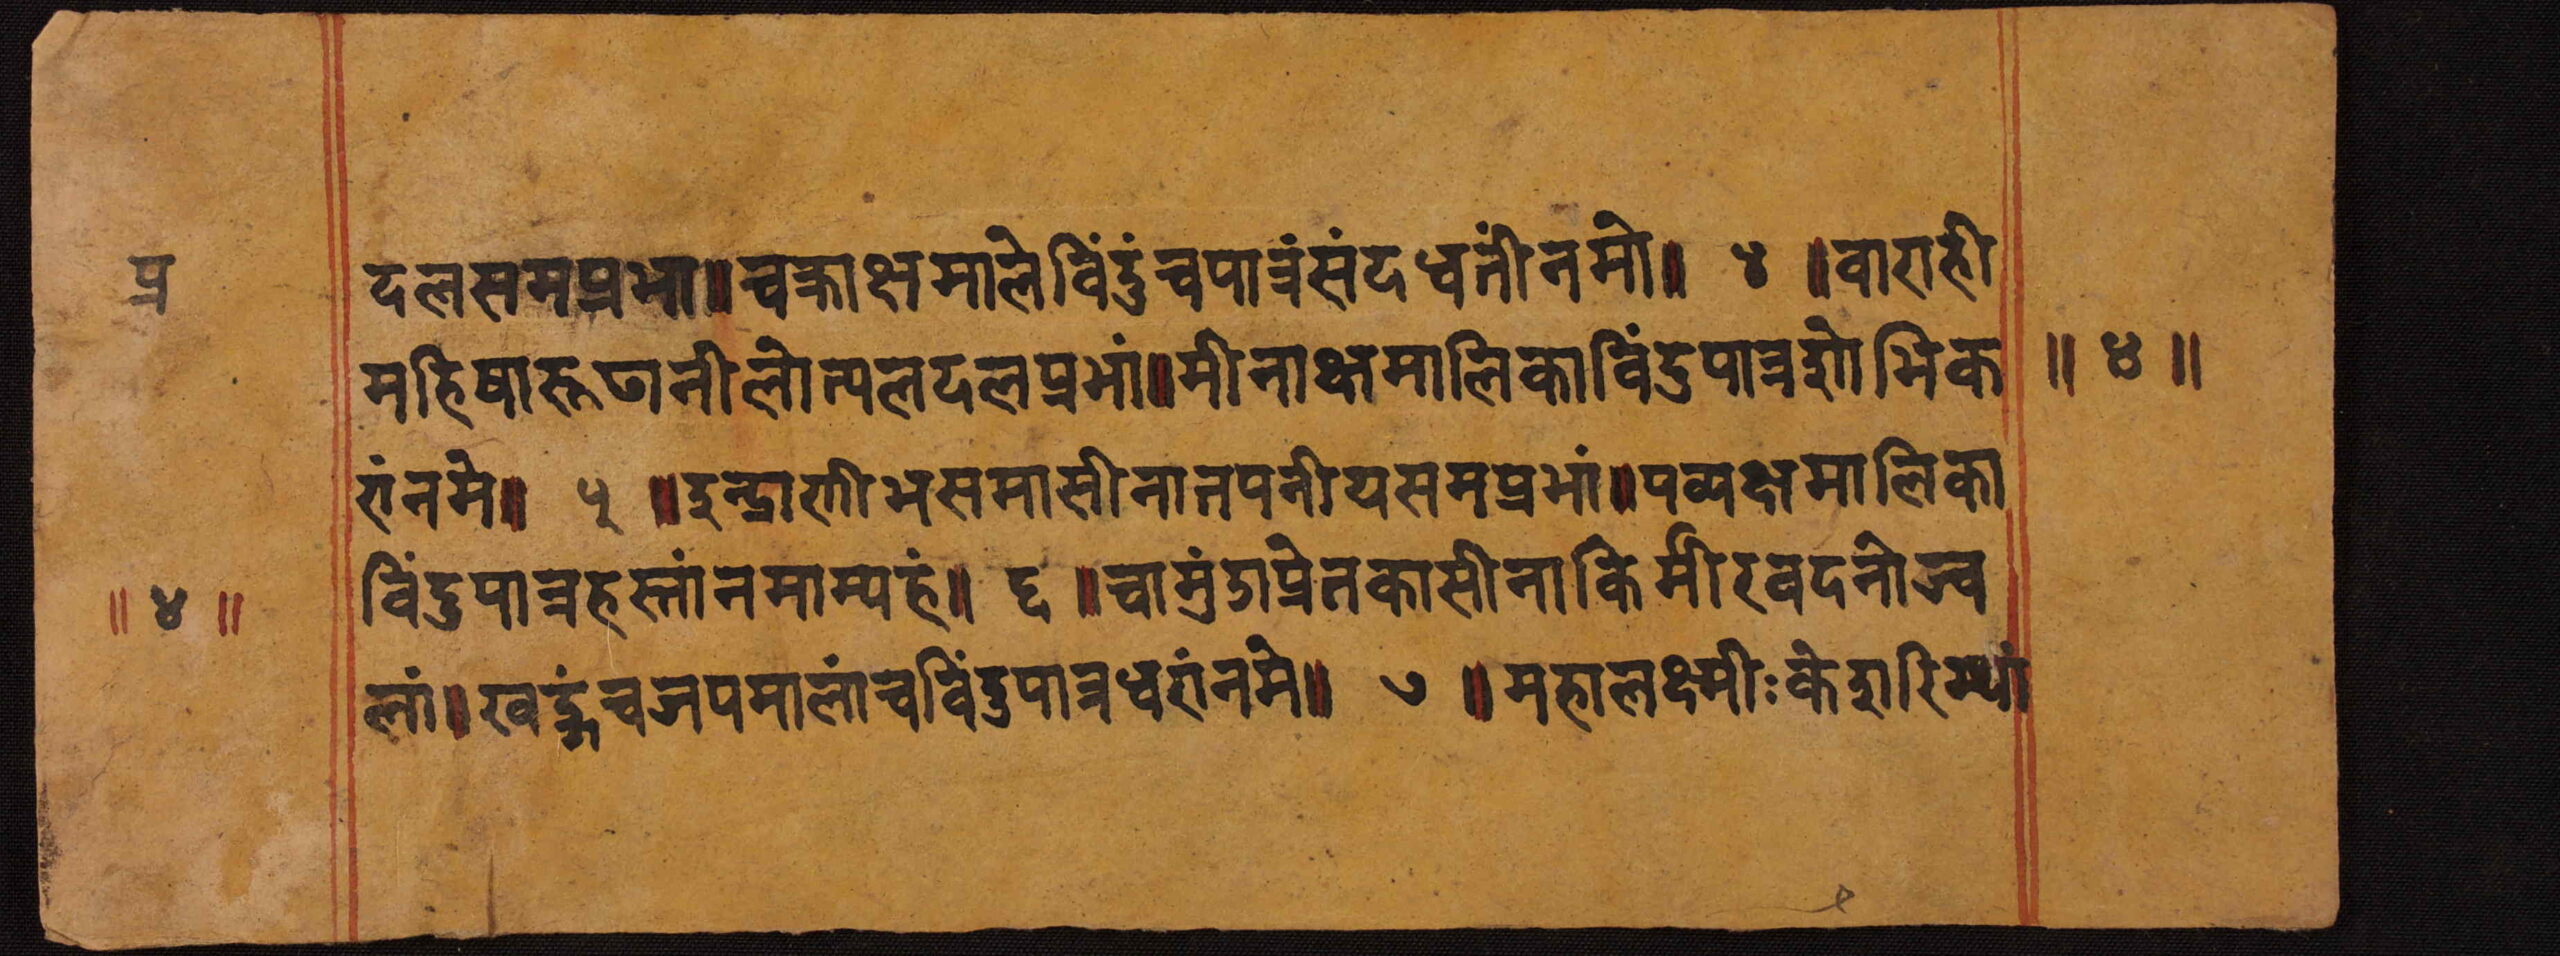 प्र
दलसमप्रभा॥चक्राक्षमाले विंदुं च पात्रं संदधतीं नमो॥ ४ ॥वाराही
महिषारूढा नीलोत्पलदलप्रभां॥मीनाक्षमालिका विंदुपात्रशोभिक ॥ ४ ॥
रां नमे॥ ५ ॥इन्द्राणीभसमासीना तपनीयसमप्रभां॥पव्यक्षमालिका
विंदुपात्रहस्तां नमाम्यहं॥ ६ ॥चामुंडा प्रेतकासीना किर्मीरवदनोज्व
॥ ४ ॥
लां॥खड्गं च जपमालां च विंदुपात्रधरां नमे॥ ७ ॥महालक्ष्मीः केशरिस्थां